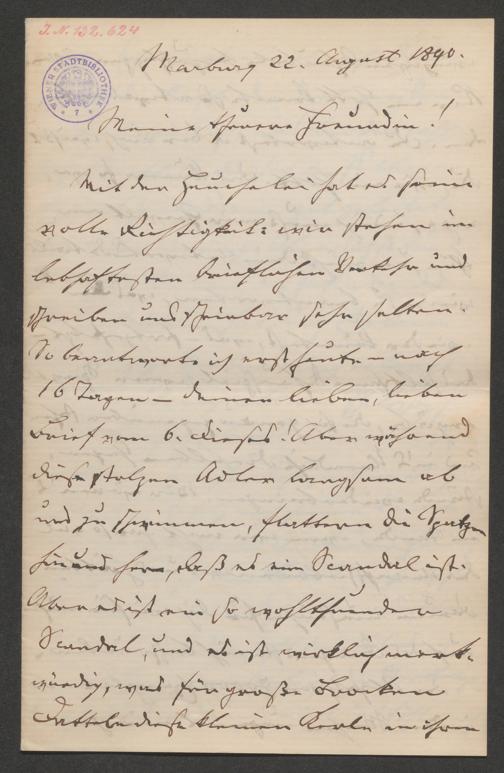 J.N. 132.624
WIENER STADTBIBLIOTHEK
7
Marburg 22. August 1890.
Meine theuere Freundin!
Mit der Heuchelei hat es seine
volle Richtigkeit: wir stehen im
lebhaftesten brieflichen Verkehr und
schreiben uns scheinbar sehr selten.
So beantworte ich erst heute – nach
16 Tagen – deinen lieben, lieben
Brief vom 6. dieses! Aber während
diese stolzen Adler langsam ab
und zu schwimmen, flattern die Spatzen
hin und her, daß es ein Scandal ist.
Aber es ist ein so wohlthuender
Scandal, und es ist wirklich merk-
würdig, was für große Brocken
diese kleinen Kerle in ihrem